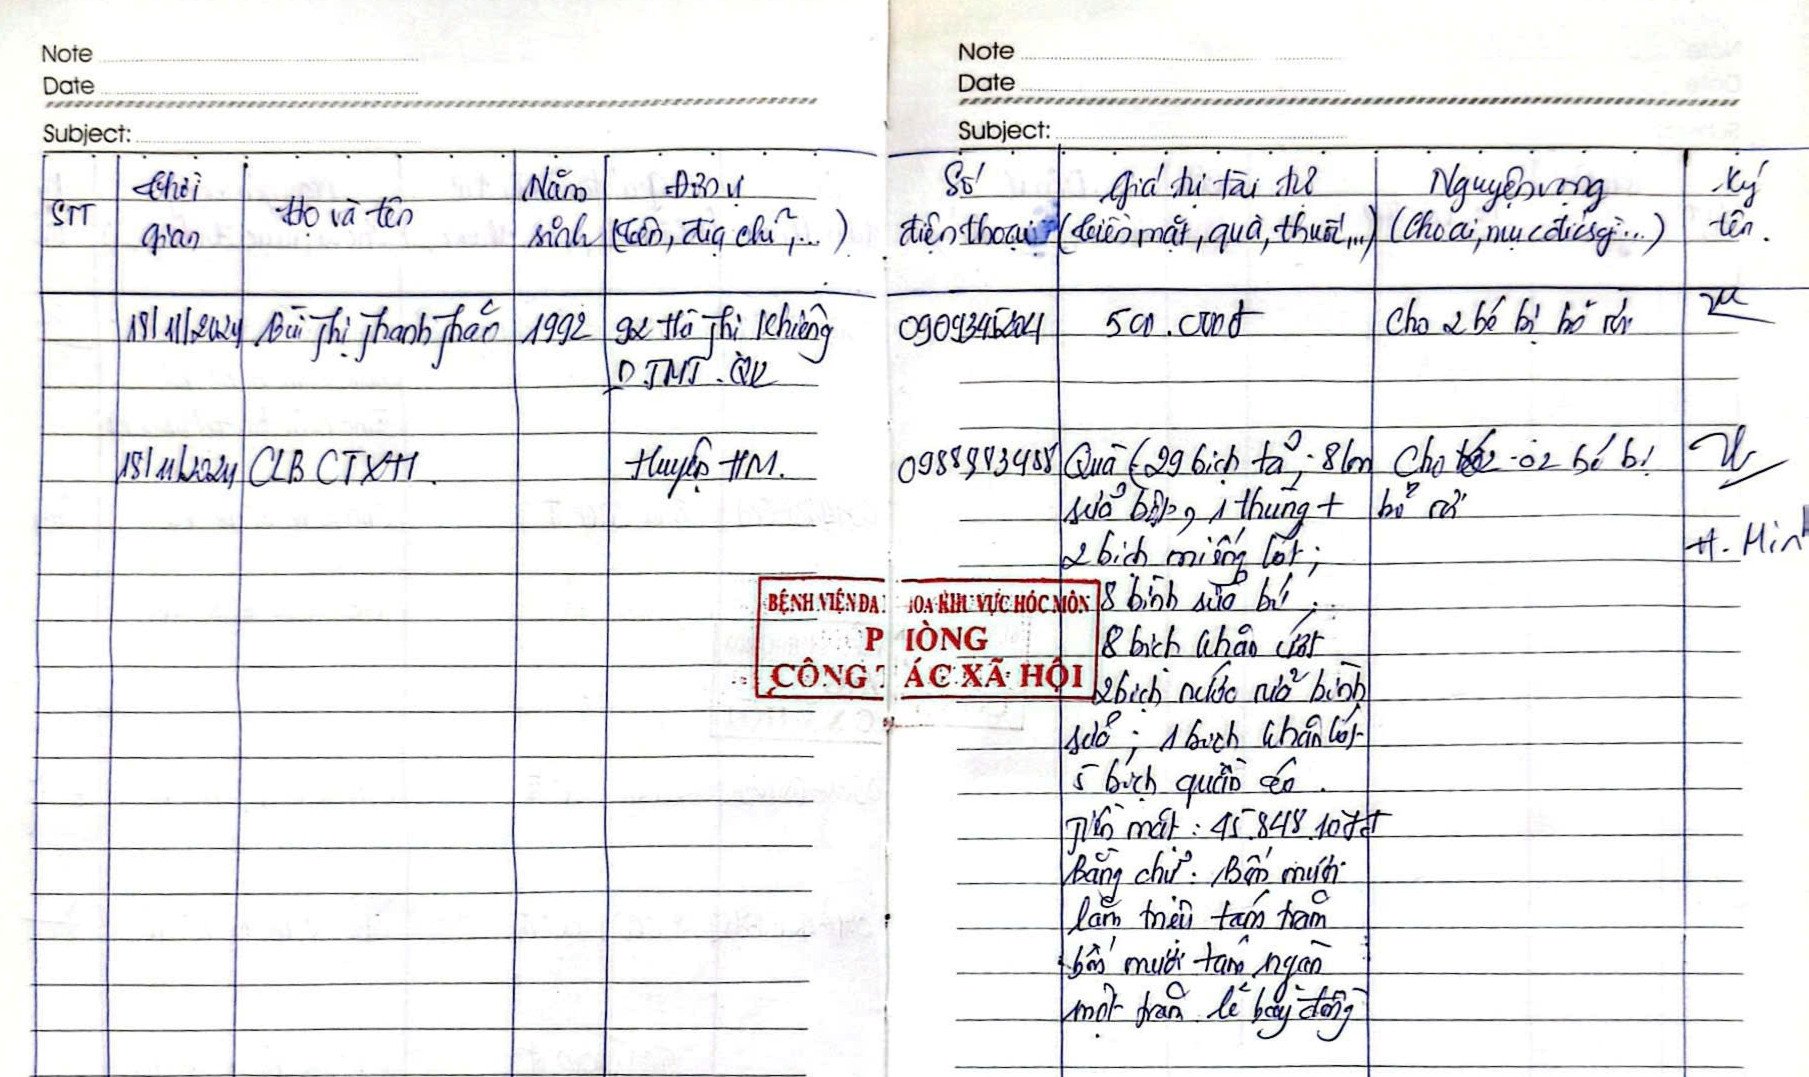 Note
Date
Subject:
Note
Date
Subject:
STT
Thời
gian
Họ và tên
Năm
sinh
Đơn vị
(tên, địa chỉ,...)
Số
điện thoại
Giá trị tài trợ
(tiền mặt, quà, thuốc,...)
Nguyện vọng
(Cho ai, mục đích gì...)
Ký
tên.
18/11/2024
Bùi Thị Thanh Thảo
1992
92 Hà Thị Khiêng
P.TMT. Q12
500.000đ
Cho 2 bé bị bỏ rơi
18/11/2024
CLB CTXH.
Huyện HM.
Quà (29 bịch tả; 8 lon
sữa bột, 1 thùng +
2 bịch miếng lót;
8 bình sữa bú;
8 bịch khăn ướt
2 bịch nước rửa bình
sữa; 1 bịch khăn lót
5 bịch quần áo.
Tiền mặt: 45.848.107đ
Bằng chữ: Bốn mươi
lăm triệu tám trăm
bốn mươi tám ngàn
một trăm lẻ bảy đồng
Cho 02 bé bị
bỏ rơi
H. Minh
BỆNH VIỆN ĐA KHOA KHU VỰC HÓC MÔN
PHÒNG
CÔNG TÁC XÃ HỘI